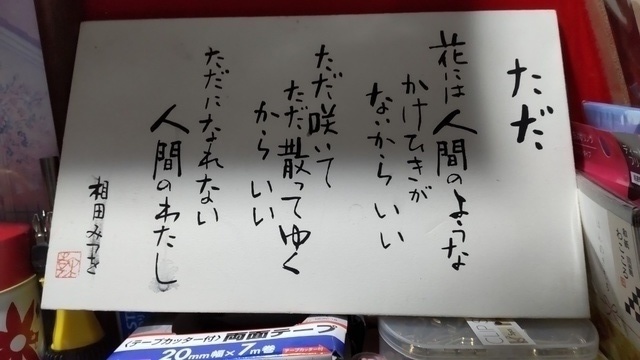 ただ
花には人間のような
かけひきが
ないからいい
ただ咲いて
ただ散ってゆく
からいい
ただになれない
人間のわたし
相田みつを
〈テープカッター付〉両面テープ
20mm幅×7m巻